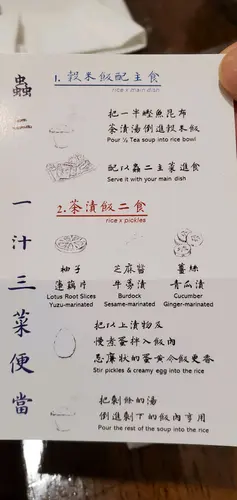 蟲
一汁三菜便當
1. 穀米飯配主食
rice x main dish
把一半鰹魚昆布
茶漬湯倒進穀米飯
Pour ½ Tea soup into rice bowl
配以蟲二主菜進食
Serve it with your main dish
2. 茶漬飯二食
rice x pickles
柚子
蓮藕片
Lotus Root Slices
Yuzu-marinated
芝麻醬
牛蒡漬
Burdock
Sesame-marinated
薑絲
青瓜漬
Cucumber
Ginger-marinated
把以上漬物及
慢煮蛋拌入飯內
忌廉狀的蛋黃令飯更香
Stir pickles & creamy egg into the rice
把剩餘的湯
倒進剩下的飯內享用
Pour the rest of the soup into the rice